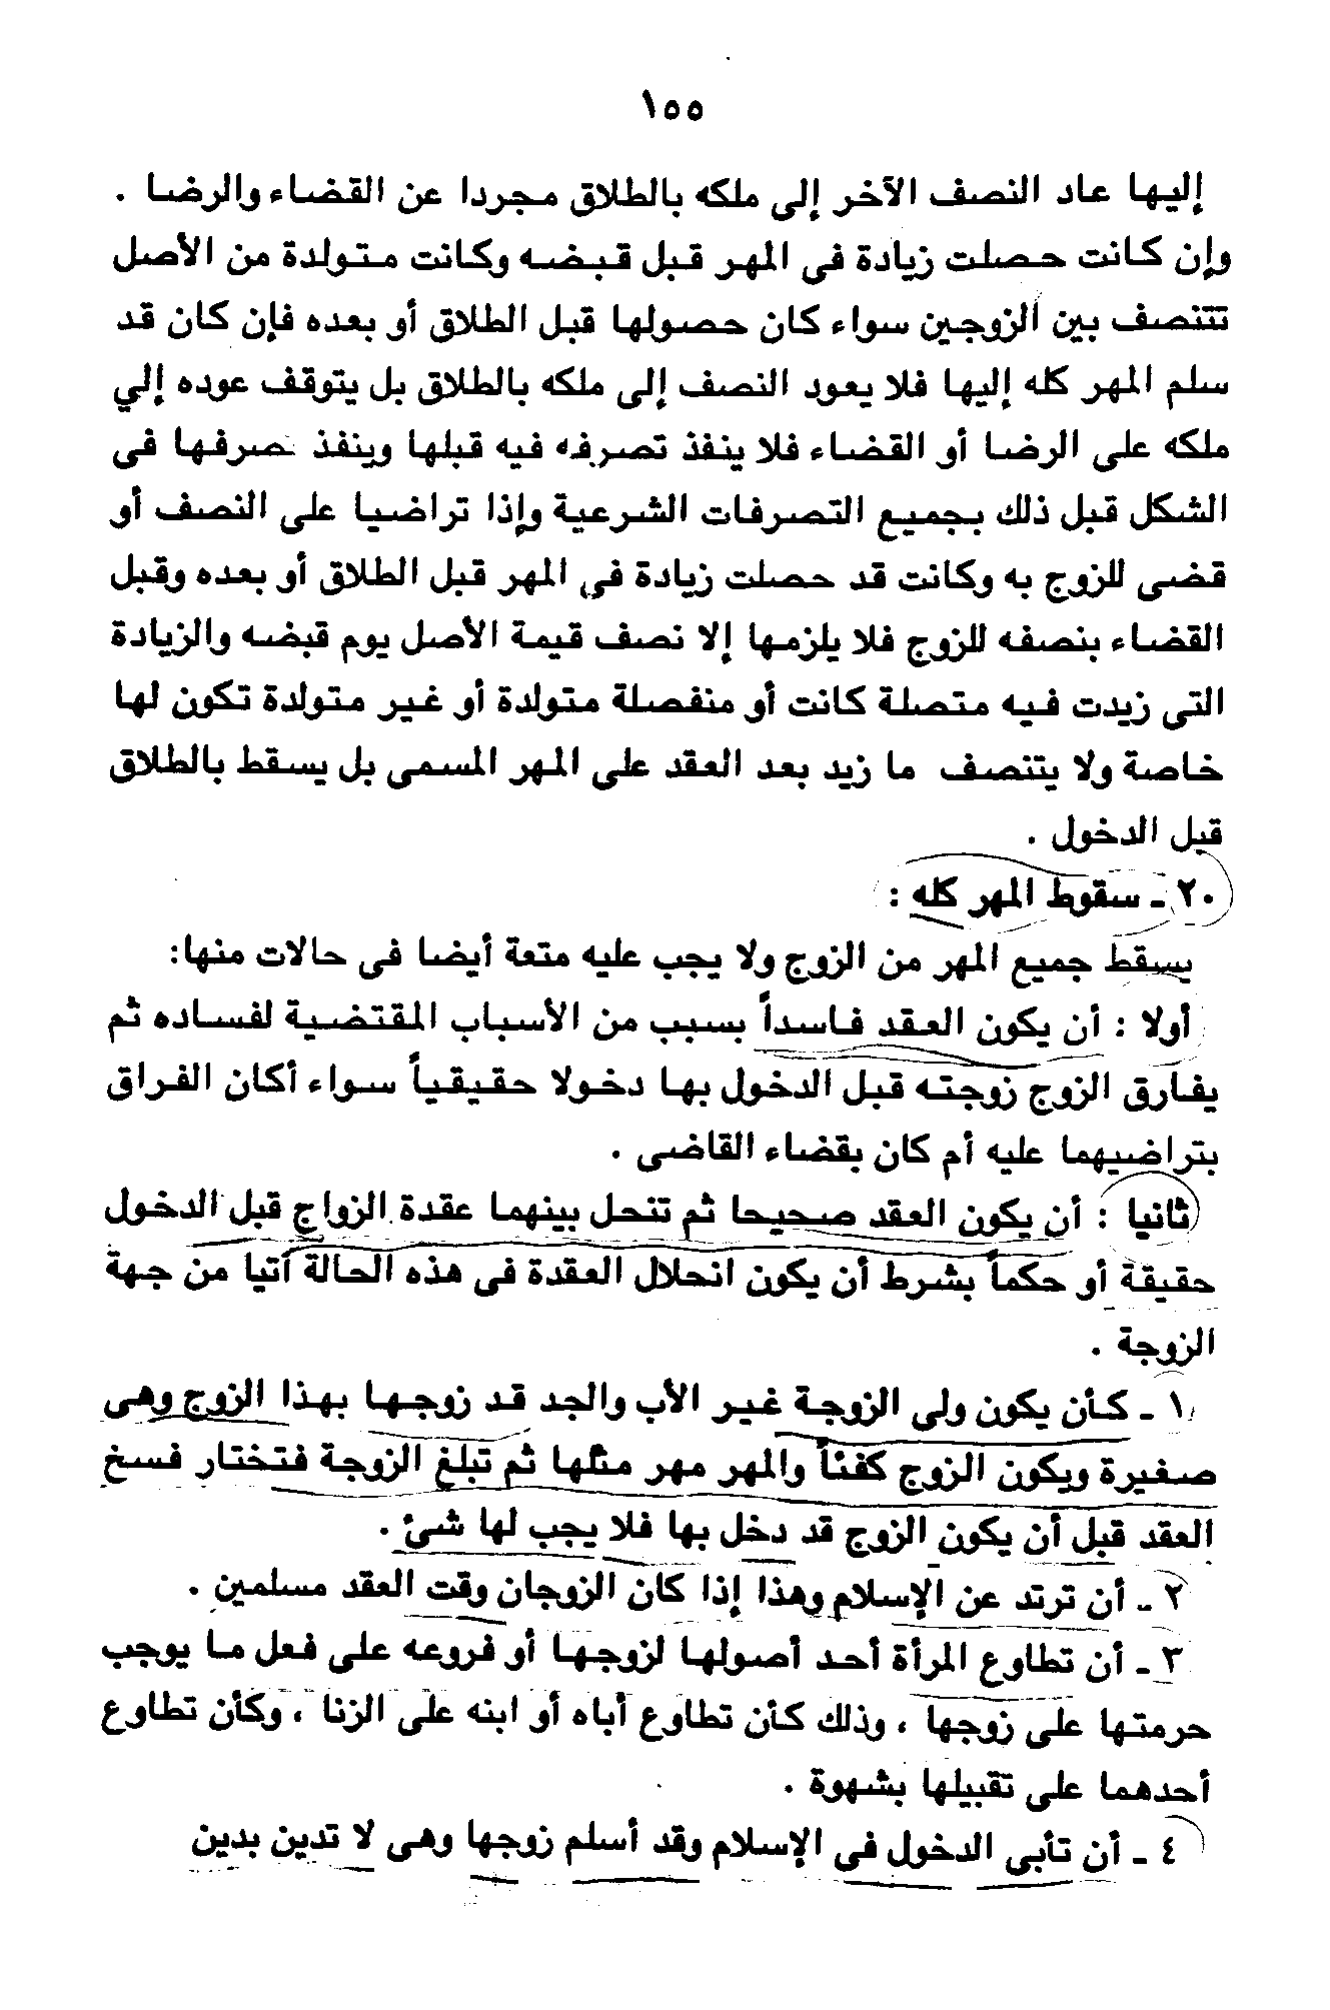 ١٥٥
إليها عاد النصف الآخر إلى ملكه بالطلاق مجردا عن القضاء والرضا .
وإن كانت حصلت زيادة فى المهر قبل قبضه وكانت متولدة من الأصل
تتنصف بين الزوجين سواء كان حصولها قبل الطلاق أو بعده فإن كان قد
سلم المهر كله إليها فلا يعود النصف إلى ملكه بالطلاق بل يتوقف عوده إلي
ملكه على الرضا أو القضاء فلا ينفذ تصرفه فيه قبلها وينفذ تصرفها فى
الشكل قبل ذلك بجميع التصرفات الشرعية وإذا تراضيا على النصف أو
قضى للزوج به وكانت قد حصلت زيادة فى المهر قبل الطلاق أو بعده وقبل
القضاء بنصفه للزوج فلا يلزمها إلا نصف قيمة الأصل يوم قبضه والزيادة
التى زيدت فيه متصلة كانت أو منفصلة متولدة أو غير متولدة تكون لها
خاصة ولا يتنصف ما زيد بعد العقد على المهر المسمى بل يسقط بالطلاق
قبل الدخول .
٢٠ ـ سقوط المهر كله :
يسقط جميع المهر من الزوج ولا يجب عليه متعة أيضا فى حالات منها:
أولا : أن يكون العقد فاسداً بسبب من الأسباب المقتضية لفساده ثم
يفارق الزوج زوجته قبل الدخول بها دخولا حقيقياً سواء أكان الفراق
بتراضيهما عليه أم كان بقضاء القاضى .
ثانيا : أن يكون العقد صحيحا ثم تنحل بينهما عقدة الزواج قبل الدخول
حقيقة أو حكماً بشرط أن يكون انحلال العقدة فى هذه الحالة آتيا من جهة
الزوجة .
١ ـ كأن يكون ولى الزوجة غير الأب والجد قد زوجها بهذا الزوج وهى
صغيرة ويكون الزوج كفئاً والمهر مهر مثلها ثم تبلغ الزوجة فتختار فسخ
العقد قبل أن يكون الزوج قد دخل بها فلا يجب لها شئ .
٢ ـ أن ترتد عن الإسلام وهذا إذا كان الزوجان وقت العقد مسلمين .
٣ ـ أن تطاوع المرأة أحد أصولها لزوجها أو فروعه على فعل ما يوجب
حرمتها على زوجها ، وذلك كأن تطاوع أباه أو ابنه على الزنا ، وكأن تطاوع
أحدهما على تقبيلها بشهوة .
٤ ـ أن تأبى الدخول فى الإسلام وقد أسلم زوجها وهى لا تدين بدين